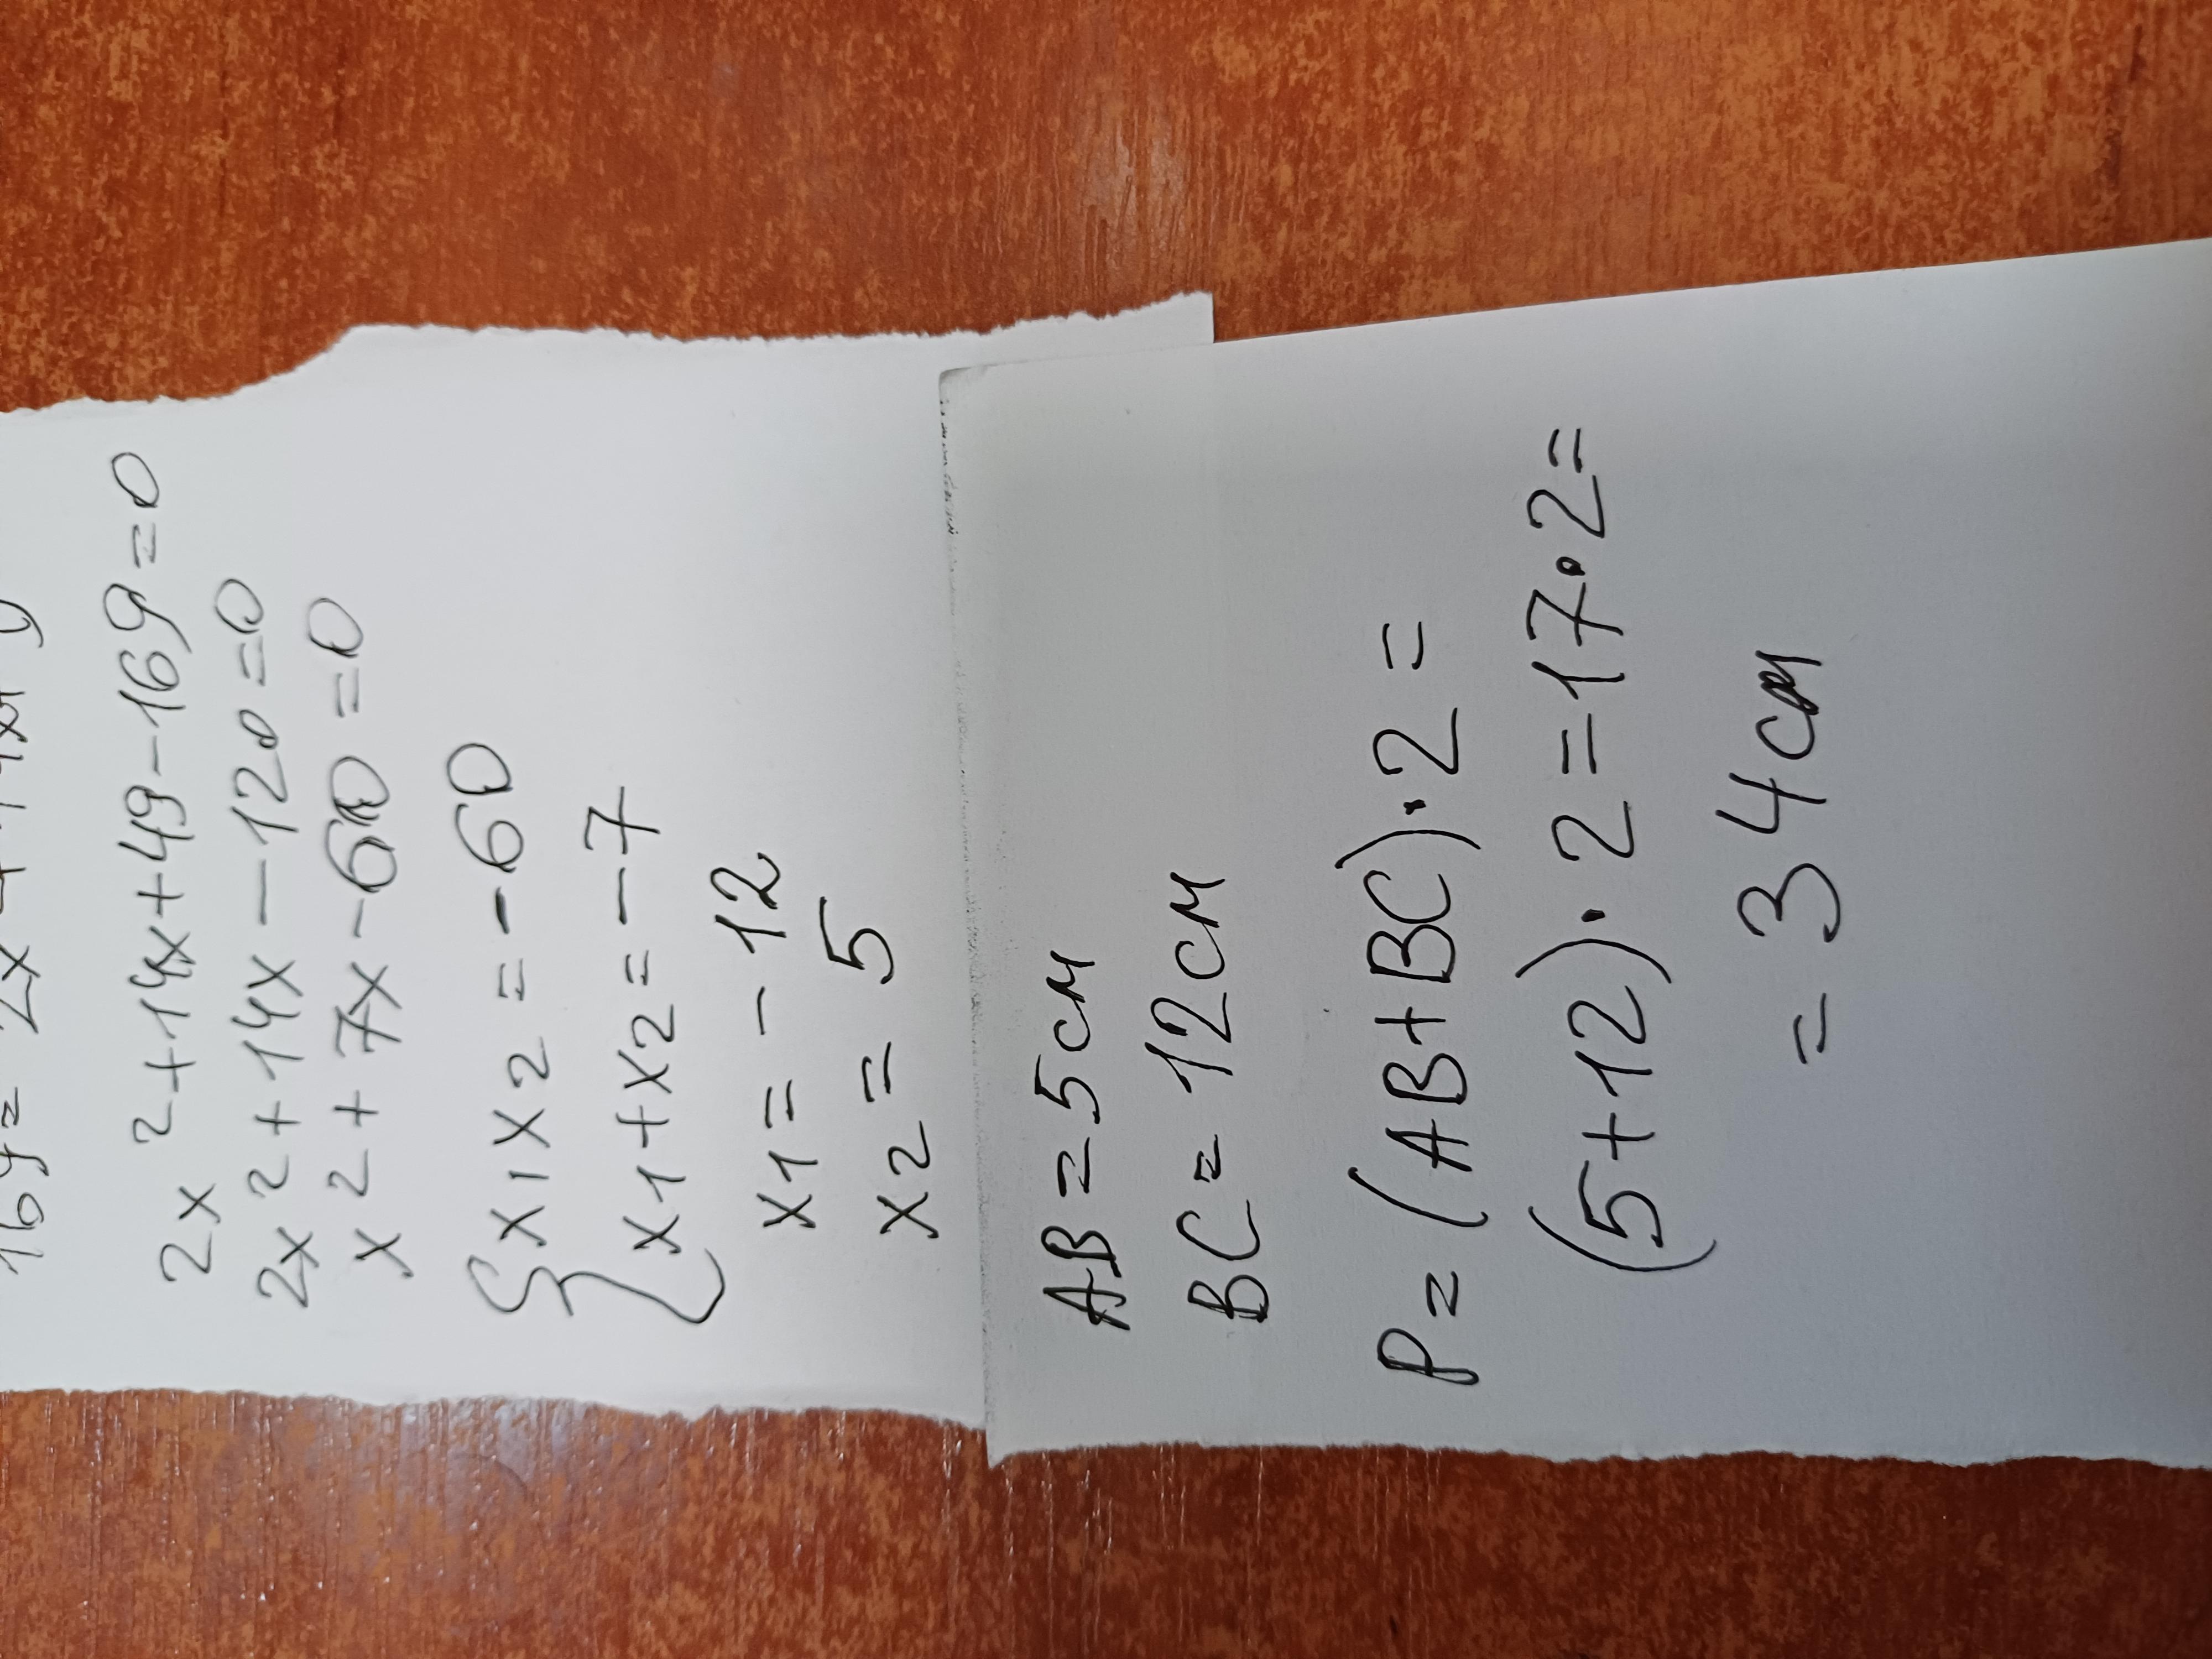 169 = 2x² + 14x + 49
2x² + 14x + 49 - 169 = 0
2x² + 14x - 120 = 0
x² + 7x - 60 = 0
{ x1x2 = -60
x1 + x2 = -7
x1 = -12
x2 = 5
AB = 5 см
BC = 12 см
P = (AB + BC) · 2 =
(5 + 12) · 2 = 17 · 2 =
= 34 см